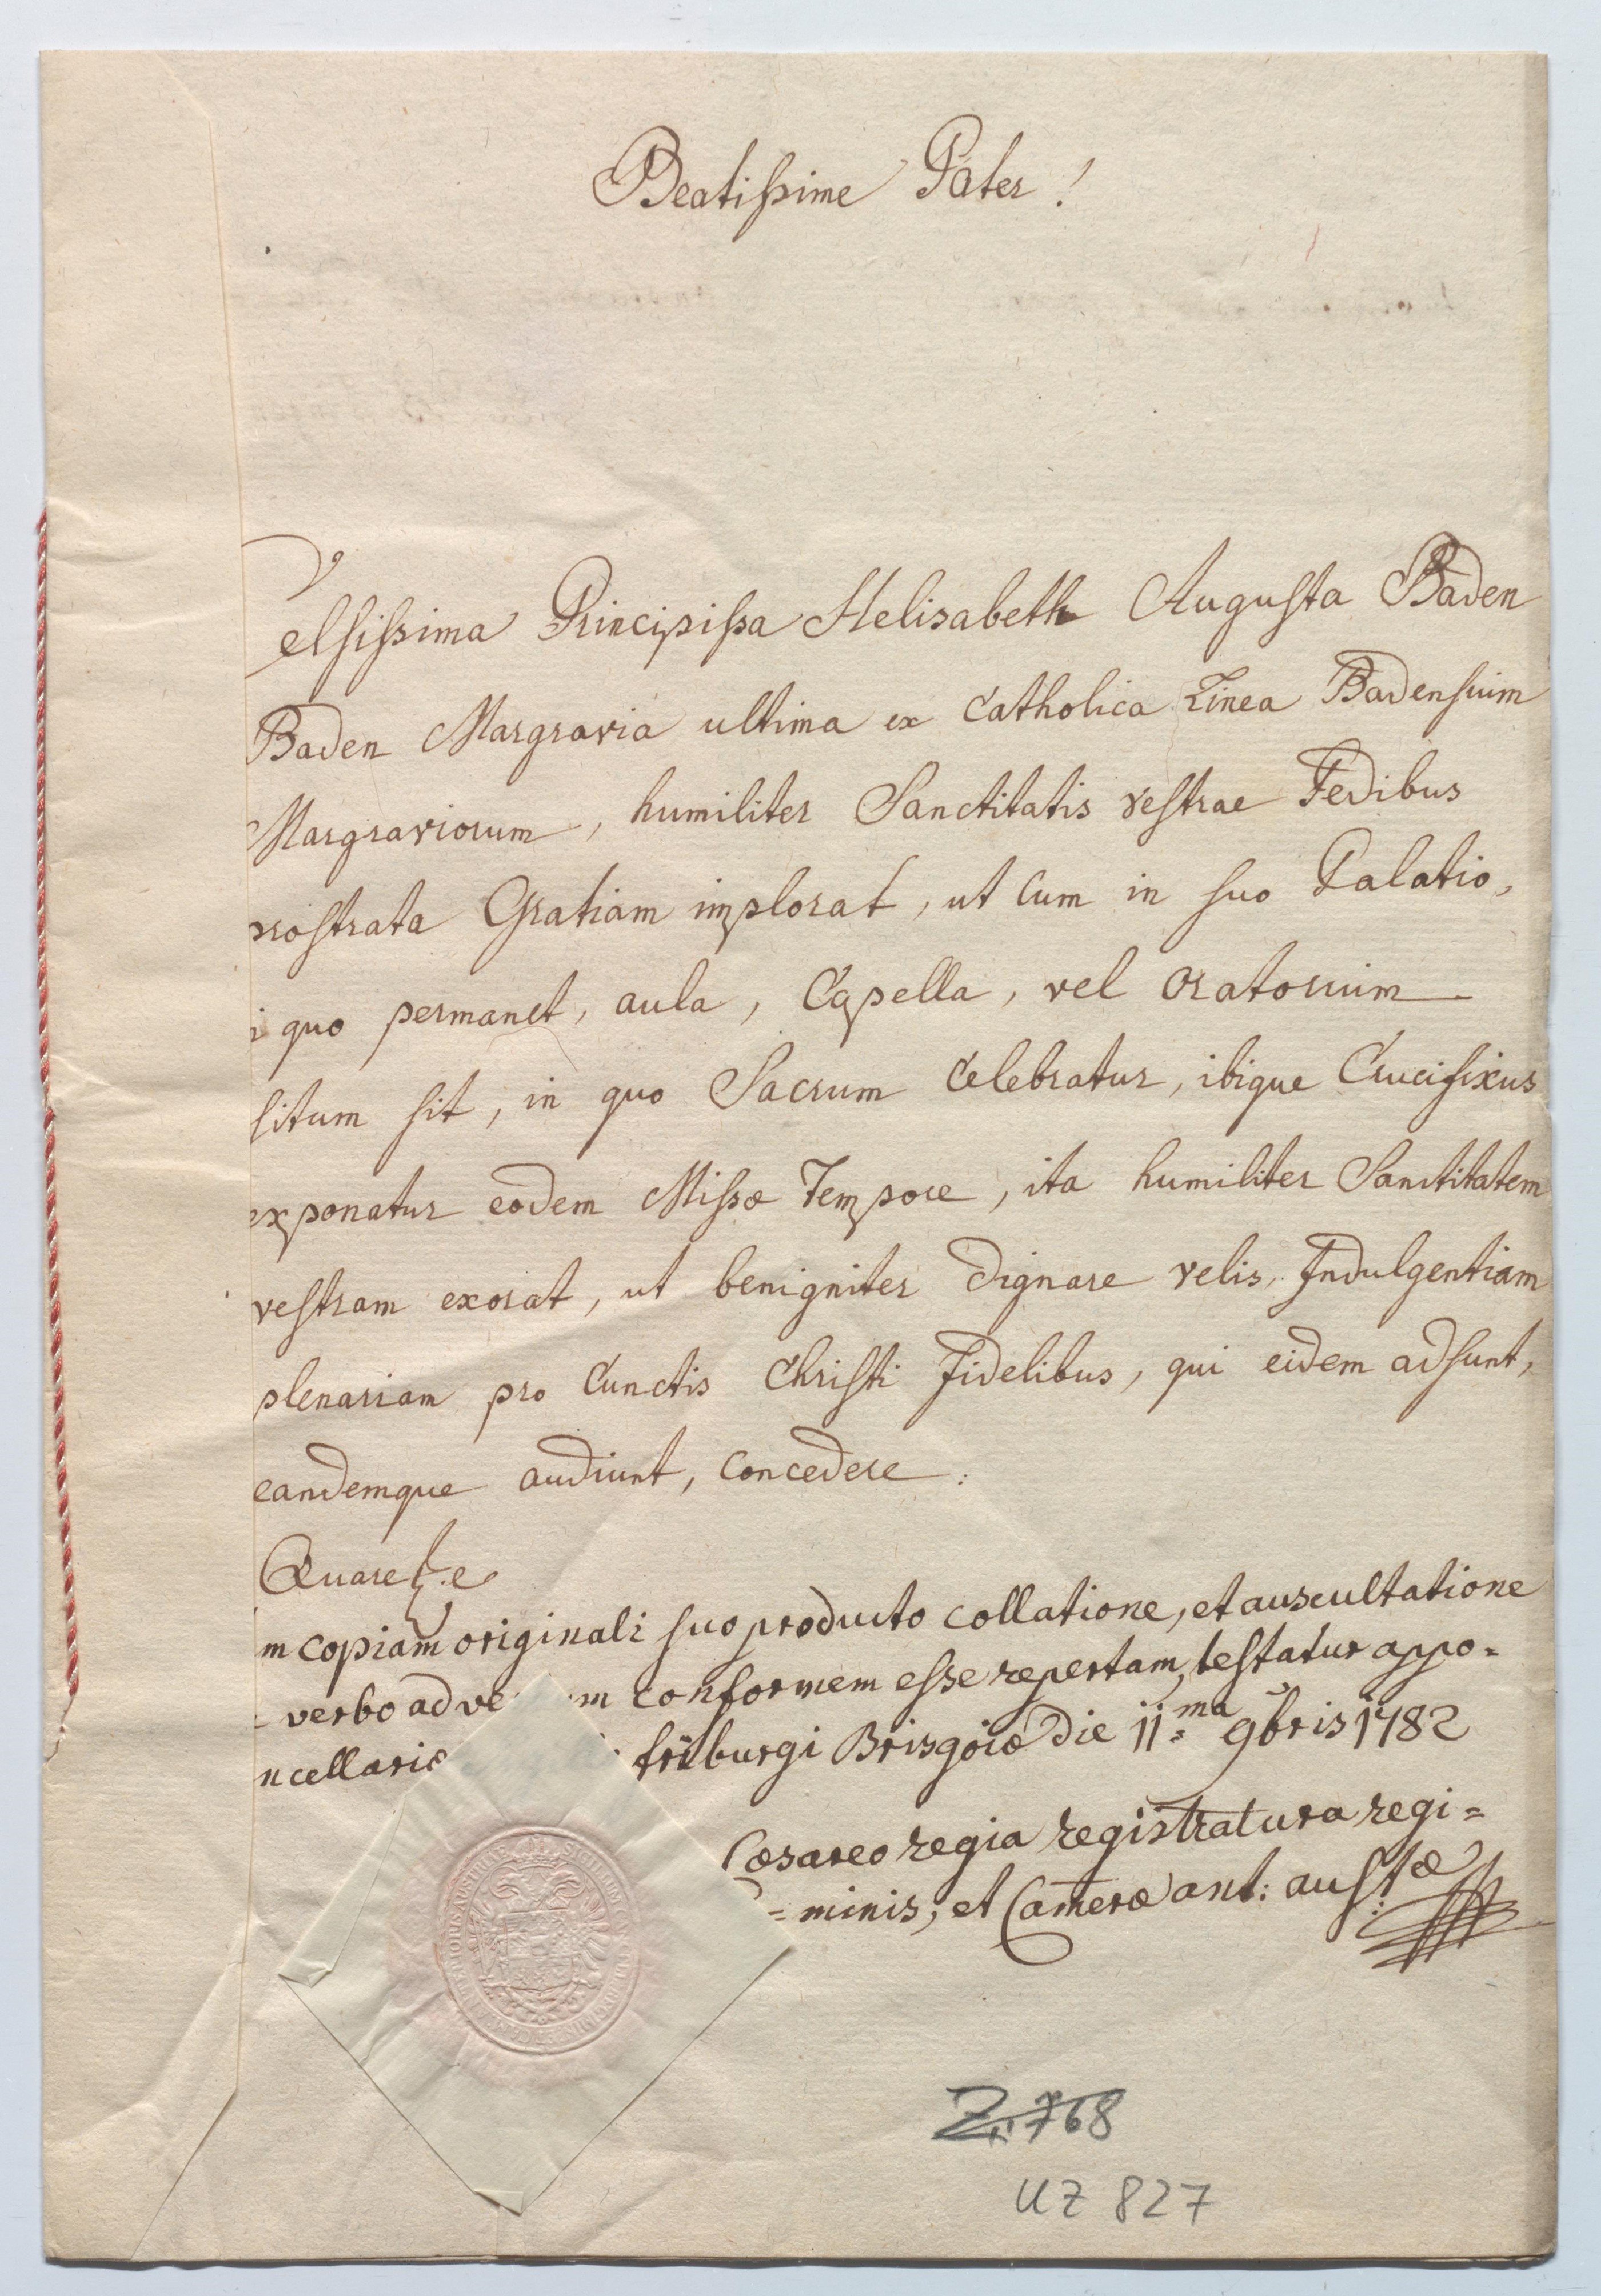 Beatissime Pater!
elsissima Principissa Helisabeth Augusta Baden
Baden Margravia ultima ex Catholica Linea Badensium
Margraviorum, humiliter Sanctitatis vestrae Pedibus
prostrata Gratiam implorat, ut cum in suo Palatio,
i quo permanet, aula, Capella, vel oratorium
situm sit, in quo Sacrum celebratur, ibique Crucifixus
exponatur eodem Missæ Tempore, ita humiliter Sanctitatem
vestram exorat, ut benigniter dignare velis, Indulgentiam
plenariam pro cunctis Christi fidelibus, qui eidem adsunt,
eandemque audiunt, concedere:
Quare
m copiam originali suo producto collatione, et auscultatione
verbo ad ve m conformem esse repertam, testatur appo=
ncellariæ friburgi Brisgoiæ Die 11=ma 9bris 1782
Cæsareo regia registratura regi=
=minis, et Cameræ ant: aust:æ
Z. 768
UZ 827